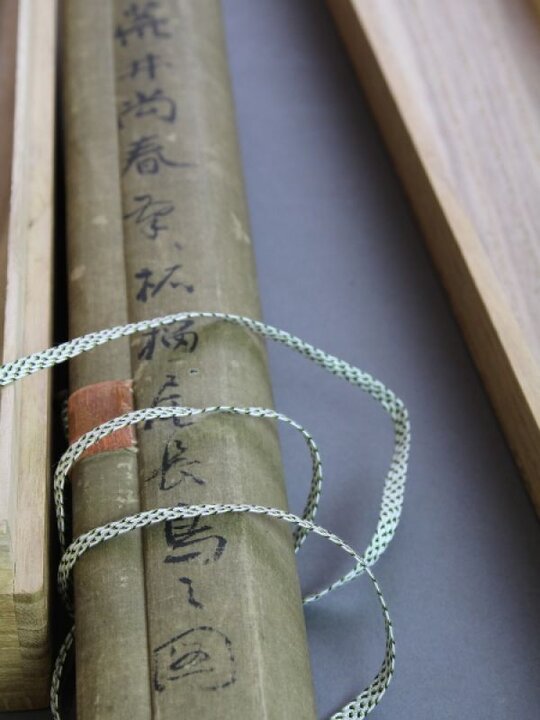 荒井尚春筆、柘榴尾長鳥之図